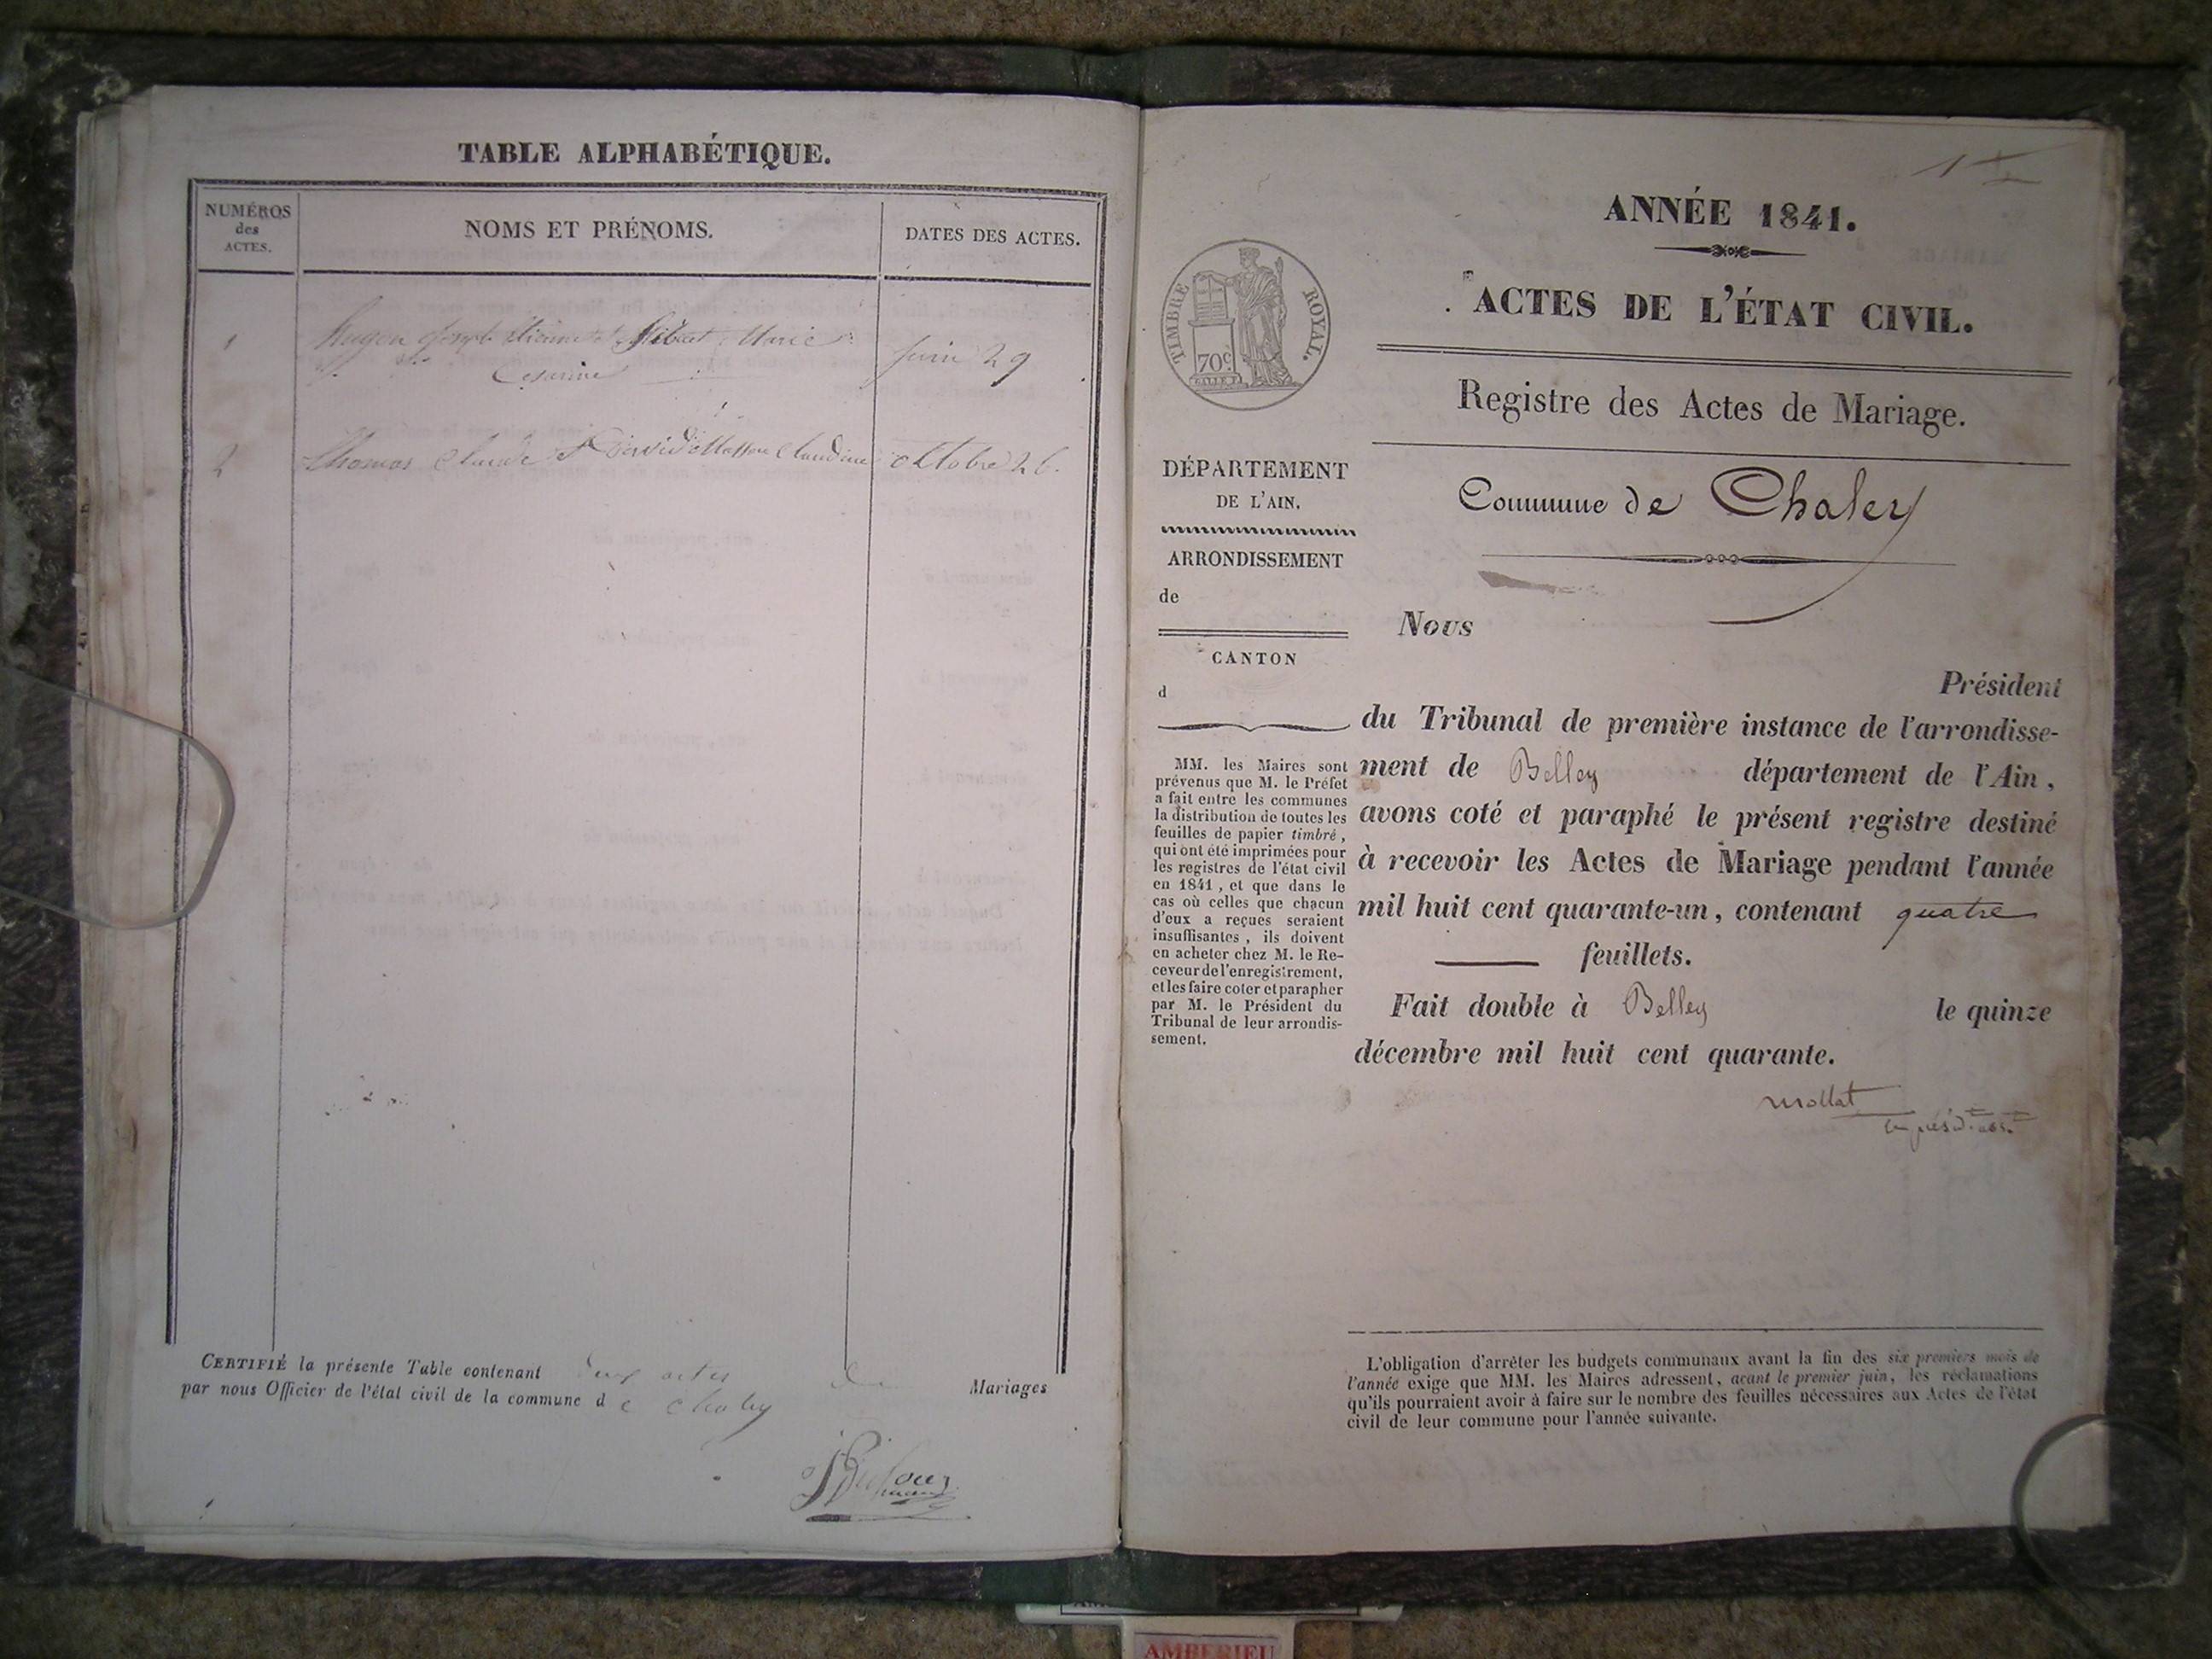 TABLE ALPHABÉTIQUE.
NUMÉROS
des
ACTES.
NOMS ET PRÉNOMS.
DATES DES ACTES.
1
Hugon Joseph Etienne et Gibert Marie
Césarine
Juin 29
2
Thomas Claude et Claudine
octobre 26.
CERTIFIÉ la présente Table contenant deux actes de Mariages
par nous Officier de l'état civil de la commune de Chaley
ANNÉE 1841.
ACTES DE L'ÉTAT CIVIL.
Registre des Actes de Mariage.
TIMBRE ROYAL.
70c.
DÉPARTEMENT
DE L'AIN.
ARRONDISSEMENT
de
CANTON
d
Commune de Chaley
Nous
Président
du Tribunal de première instance de l'arrondisse-
ment de Belley département de l'Ain,
avons coté et paraphé le présent registre destiné
à recevoir les Actes de Mariage pendant l'année
mil huit cent quarante-un, contenant quatre
feuillets.
Fait double à Belley le quinze
décembre mil huit cent quarante.
Mollat
MM. les Maires sont
prévenus que M. le Préfet
a fait entre les communes
la distribution de toutes les
feuilles de papier timbré,
qui ont été imprimées pour
les registres de l'état civil
en 1841, et que dans le
cas où celles que chacun
d'eux a reçues seraient
insuffisantes, ils doivent
en acheter chez M. le Re-
ceveur de l'enregistrement,
et les faire coter et parapher
par M. le Président du
Tribunal de leur arrondis-
sement.
L'obligation d'arrêter les budgets communaux avant la fin des six premiers mois de
l'année exige que MM. les Maires adressent, avant le premier juin, les réclamations
qu'ils pourraient avoir à faire sur le nombre des feuilles nécessaires aux Actes de l'état
civil de leur commune pour l'année suivante.
AMBERIEU